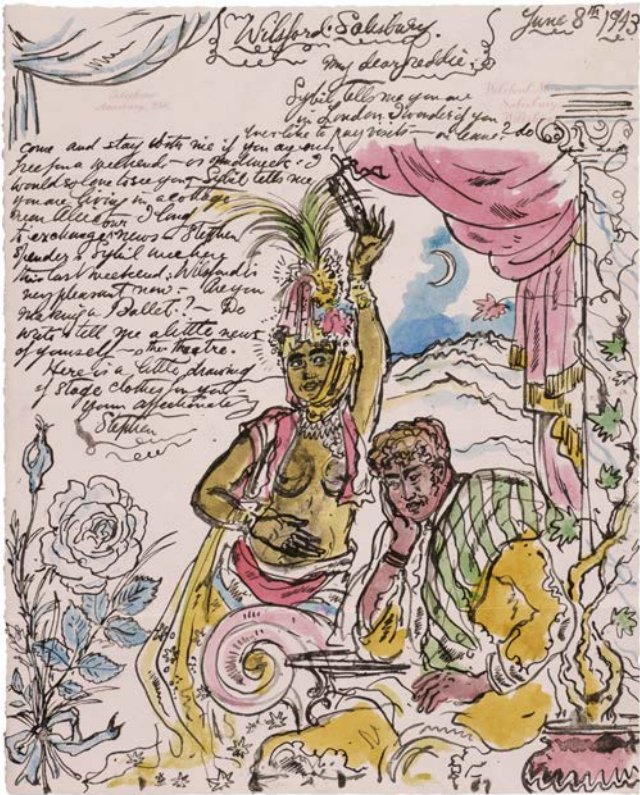 Wilsford. Salisbury.
June 8th 1943
My dear Freddie:
Sybil tells me you are
in London. I wonder if you
ever like to pay visits — or leave? do
come and stay with me if you are ever
free for a weekend — or midweek: I
would so love to see you — Sybil tells me
you are living in a cottage
near Alice — I long
to exchange news. Stephen
Spender & Sybil were here
this last weekend. Wilsford is
very pleasant now — Are you
making a Ballet.? — Do
write & tell me a little news
of yourself — & the theatre.
Here is a little drawing
of stage clothes for you —
your affectionate
Stephen